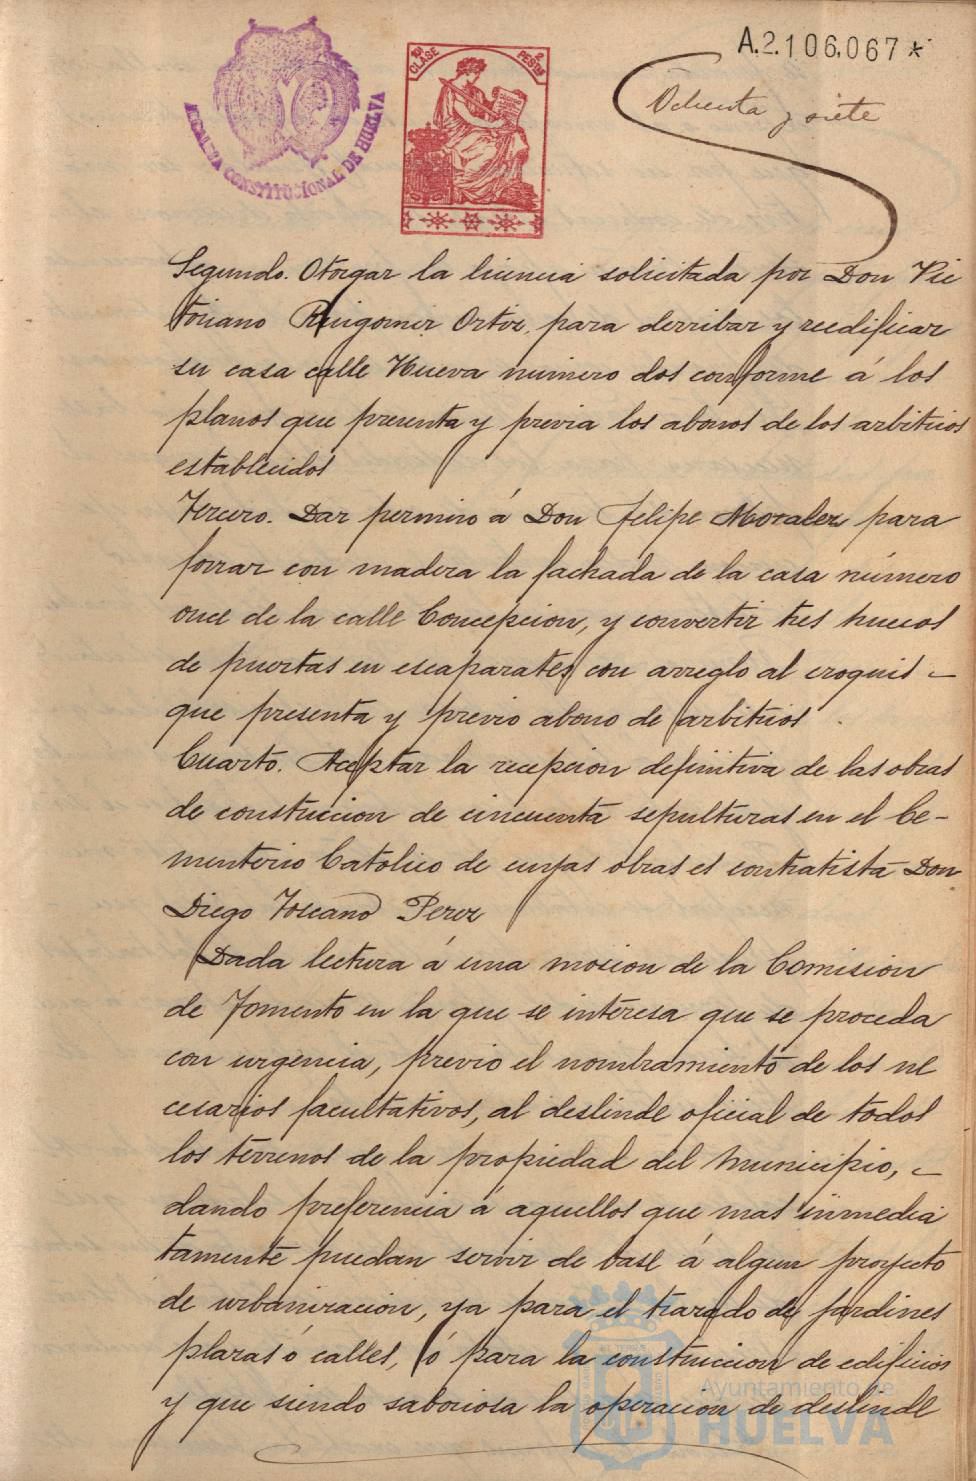 A.2.106.067*
ALCALDIA CONSTITUCIONAL DE HUELVA
10ª CLASE
2 PESTAS
Ochenta y siete
Segundo. Otorgar la licencia solicitada por Don Vic
toriano Ortiz, para derribar y reedificar
su casa calle Nueva número dos conforme á los
planos que presenta y previa los abonos de los arbitrios
establecidos
Tercero. Dar permiso á Don Felipe Morales para
forrar con madera la fachada de la casa número
once de la calle Concepcion, y convertir tres huecos
de puertas en escaparates, con arreglo al croquis -
que presenta y previo abono de arbitrios.
Cuarto. Aceptar la recepcion definitiva de las obras
de construccion de cincuenta sepulturas en el Ce-
menterio Catolico de cuyas obras es contratista Don
Diego Toscano Perez
Dada lectura á una mocion de la Comision
de Fomento en la que se interesa que se proceda
con urgencia, previo el nombramiento de los ne
cesarios facultativos, al deslinde oficial de todos
los terrenos de la propiedad del Municipio, -
dando preferencia á aquellos que mas inmedia
tamente puedan servir de base á algun proyecto
de urbanizacion, ya para el trazado de jardines
plazas ó calles, ó para la construccion de edificios
y que siendo laboriosa la operacion de deslinde
Ayuntamiento de
HUELVA